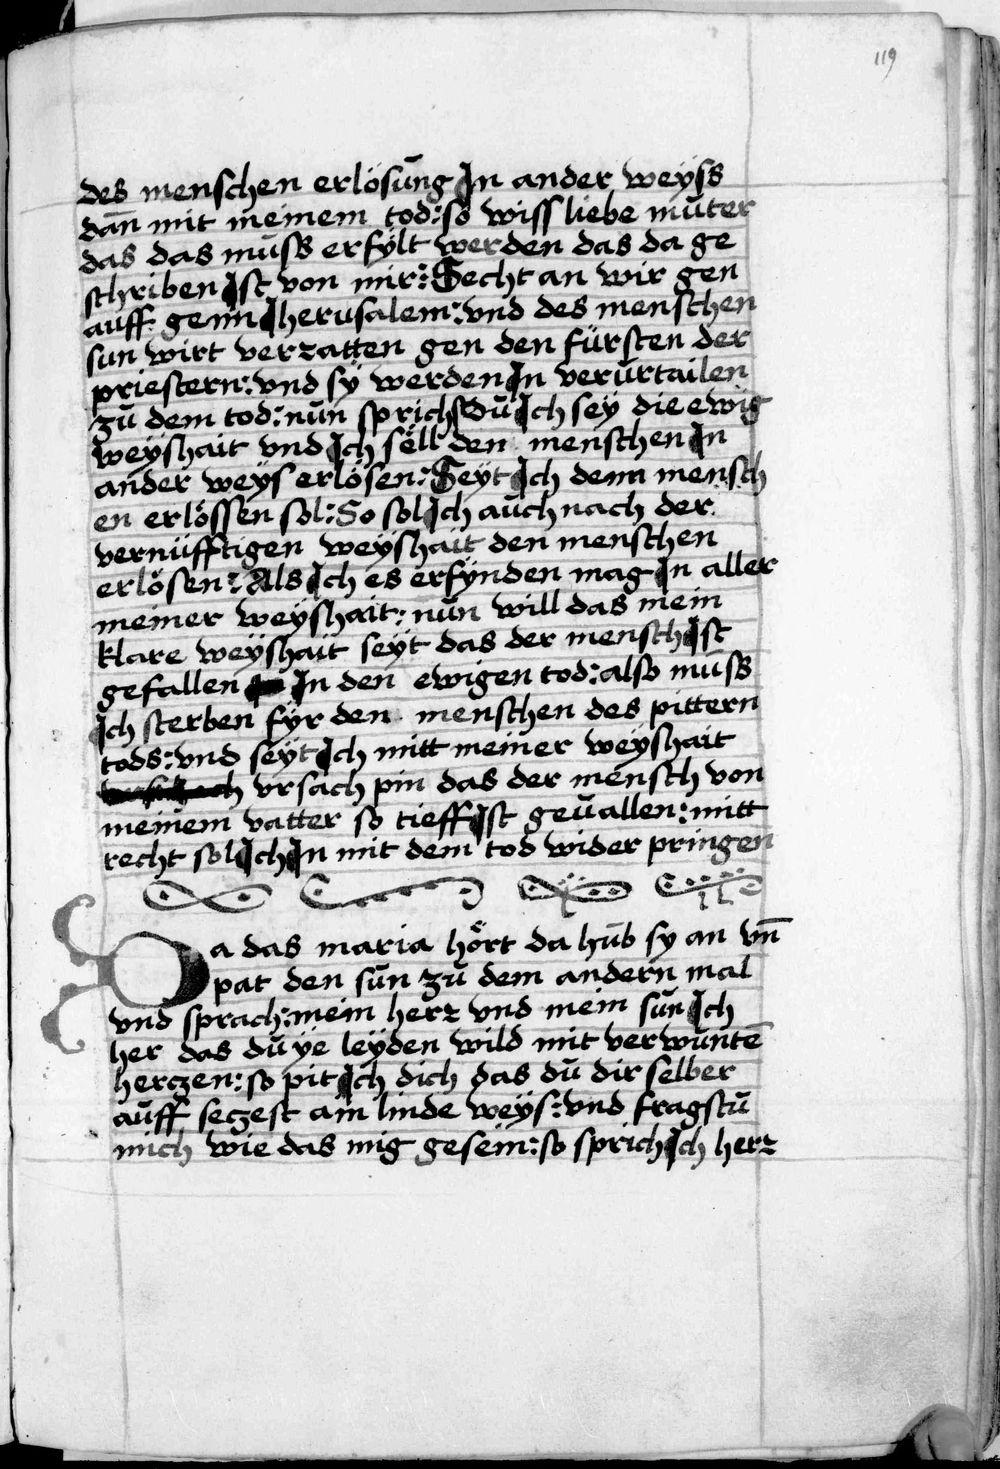 119
des menschen erlösūng In ander weÿss
dan̄ mit meinem tod: so wiss liebe mūter
das das muss erfÿlt werden das da ge
schriben Ist von mir: Secht an wir gen
auff genn Iherusalem: vnd des menschen
sun wirt verratten gen den fürsten der
priestern: vnd sÿ werden In verūrtailen
zū dem tod: nūn sprichst Dū Ich seÿ die ewig
weÿshait vnd Ich söll den menschen In
ander weÿs erlösen: Seÿt Ich denn mensch
en erlössen sol: So sol Ich aūch nach der
vernüfftigen weÿshait den menschen
erlösen: Als Ich es erfÿnden mag In aller
meiner weÿshait: nūn will das mein
klare weÿshait seÿt das der mensch Ist
gefallen In den ewigen tod: also mūss
Ich sterben fÿr den menschen des pittern
tods: vnd seÿt Ich mitt meiner weÿshait
vrsach pin das der mensch von
meinem vatter so tieff Ist geūallen: mitt
recht sol Ich In mit dem tod wider pringen
Da das maria hört da hūb sy an vn̄
pat den sūn zū dem andern mal
vnd sprach: mein herr vnd mein sūn Ich
her das dū ÿe leÿden wild mit verwūntē
herczen: so pit Ich dich das dū dir selber
aūff seczest ain linde weÿs: vnd fragstū
mich wie das mig gesein: so sprich Ich herr